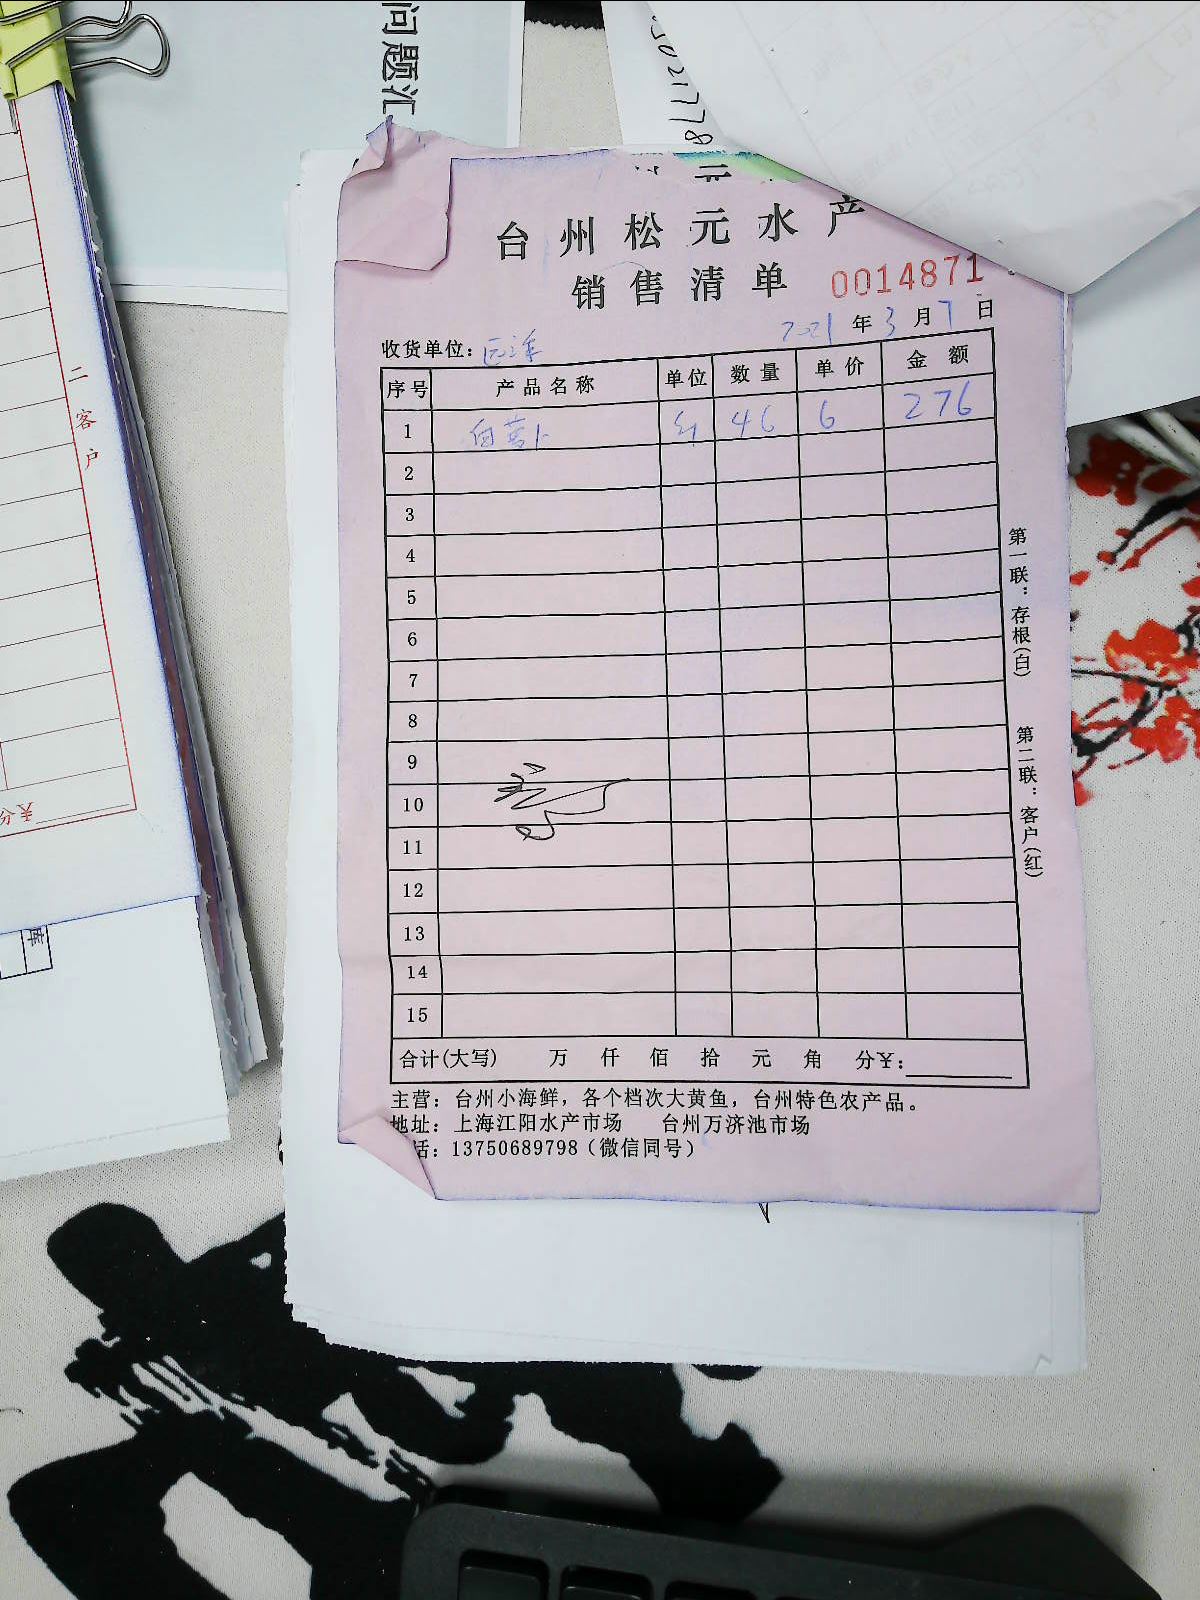 问题汇
5021778
台州松元水产
销售清单 0014871
2021年3月7日
收货单位:
序号 产品名称 单位 数量 单价 金额
1 白萝卜 斤 46 6 276
2
3
4
5
6
7
8
9
10
11
12
13
14
15
合计(大写) 万 仟 佰 拾 元 角 分¥:
主营：台州小海鲜，各个档次大黄鱼，台州特色农产品。
地址：上海江阳水产市场 台州万济池市场
话：13750689798（微信同号）
第一联：存根(白)
第二联：客户(红)
二 客户
分¥
库